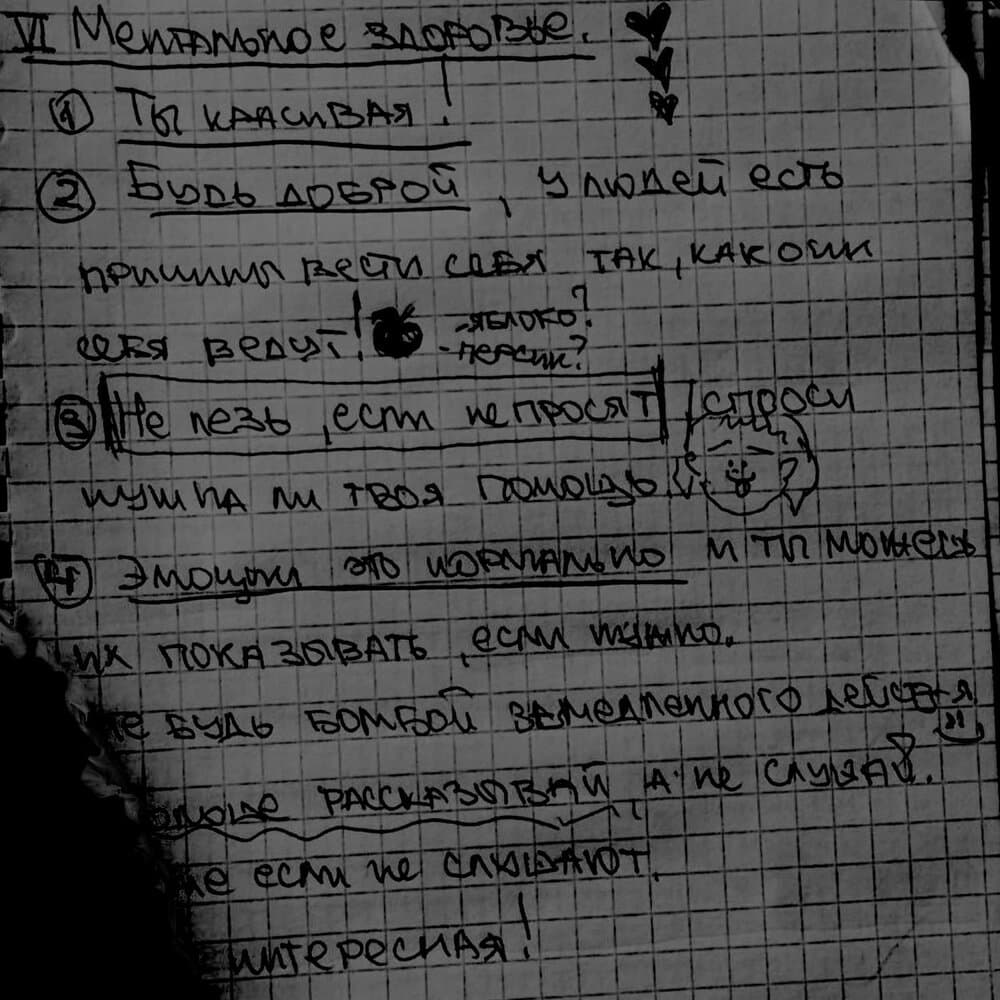 VI Ментальное здоровье.
① Ты красивая!
② Будь доброй, у людей есть
причины вести себя так, как они
себя ведут! -яблоко?
-персик?
③ Не лезь, если не просят, спроси
нужна ли твоя помощь
④ Эмоции это нормально и ты можешь
их показывать, если нужно.
не будь бомбой замедленного действия
рассказывай, а не слушай.
если не слышают.
интересная!